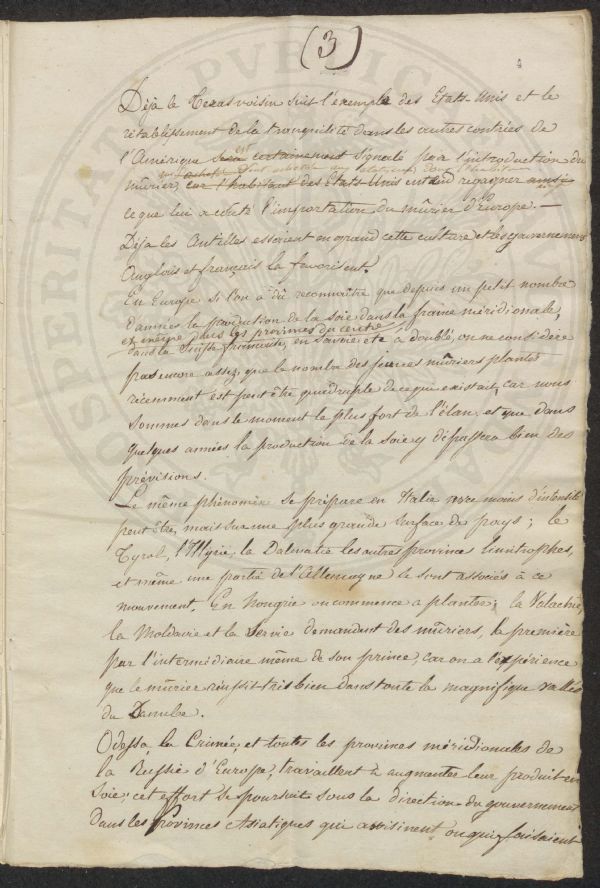 (3)
Déjà le Texas voisin suit l'exemple des Etats-Unis et le
rétablissement de la tranquilité dans les autres contrées de
l'Amérique sera est certainement signalé par l'introduction du
mûrier, car l'habitant des Etats Unis entend regagner ainsi
ce que lui a coûté l'importation du mûrier d'Europe. —
Déja les Antilles essaient en grand cette culture et les gouvernemens
Anglois et français la favorisent.
En Europe si l'on a dû reconnaître que depuis un petit nombre
d'années la production de la soie dans la france méridionale,
et même dans les provinces du centre
dans la Suisse francaise, en Savoie etc a doublé, on ne considère
pas encore assez, que le nombre des jeunes mûriers plantés
récemment est peut être quadruple de ce qui existait, car nous
sommes dans le moment le plus fort de l'élan, et que dans
quelques années la production de la soie y dépassera bien des
prévisions.
Le même phénomène se prépare en Italie avec moins d'intensité
peut être, mais sur une plus grande surface de pays; le
Tyrol, l'Illyrie, la Dalmatie les autres provinces limitrophes,
et même une partie de l'Allemagne se sont associés à ce
mouvement. En Hongrie on commence a planter; la Valachie,
la Moldavie et la Servie demandent des mûriers, la première
par l'intermédiaire même de son prince, car on a l'expérience
que le mûrier réussit très bien dans toute la magnifique vallée
du Danube.
Odessa, la Crimée, et toutes les provinces méridionales de
la Russie d'Europe, travaillent à augmenter leur produit en
Soie; cet effort se poursuit sous la direction du gouvernement
dans les Provinces Asiatiques qui avoisinent ou qui faisaient